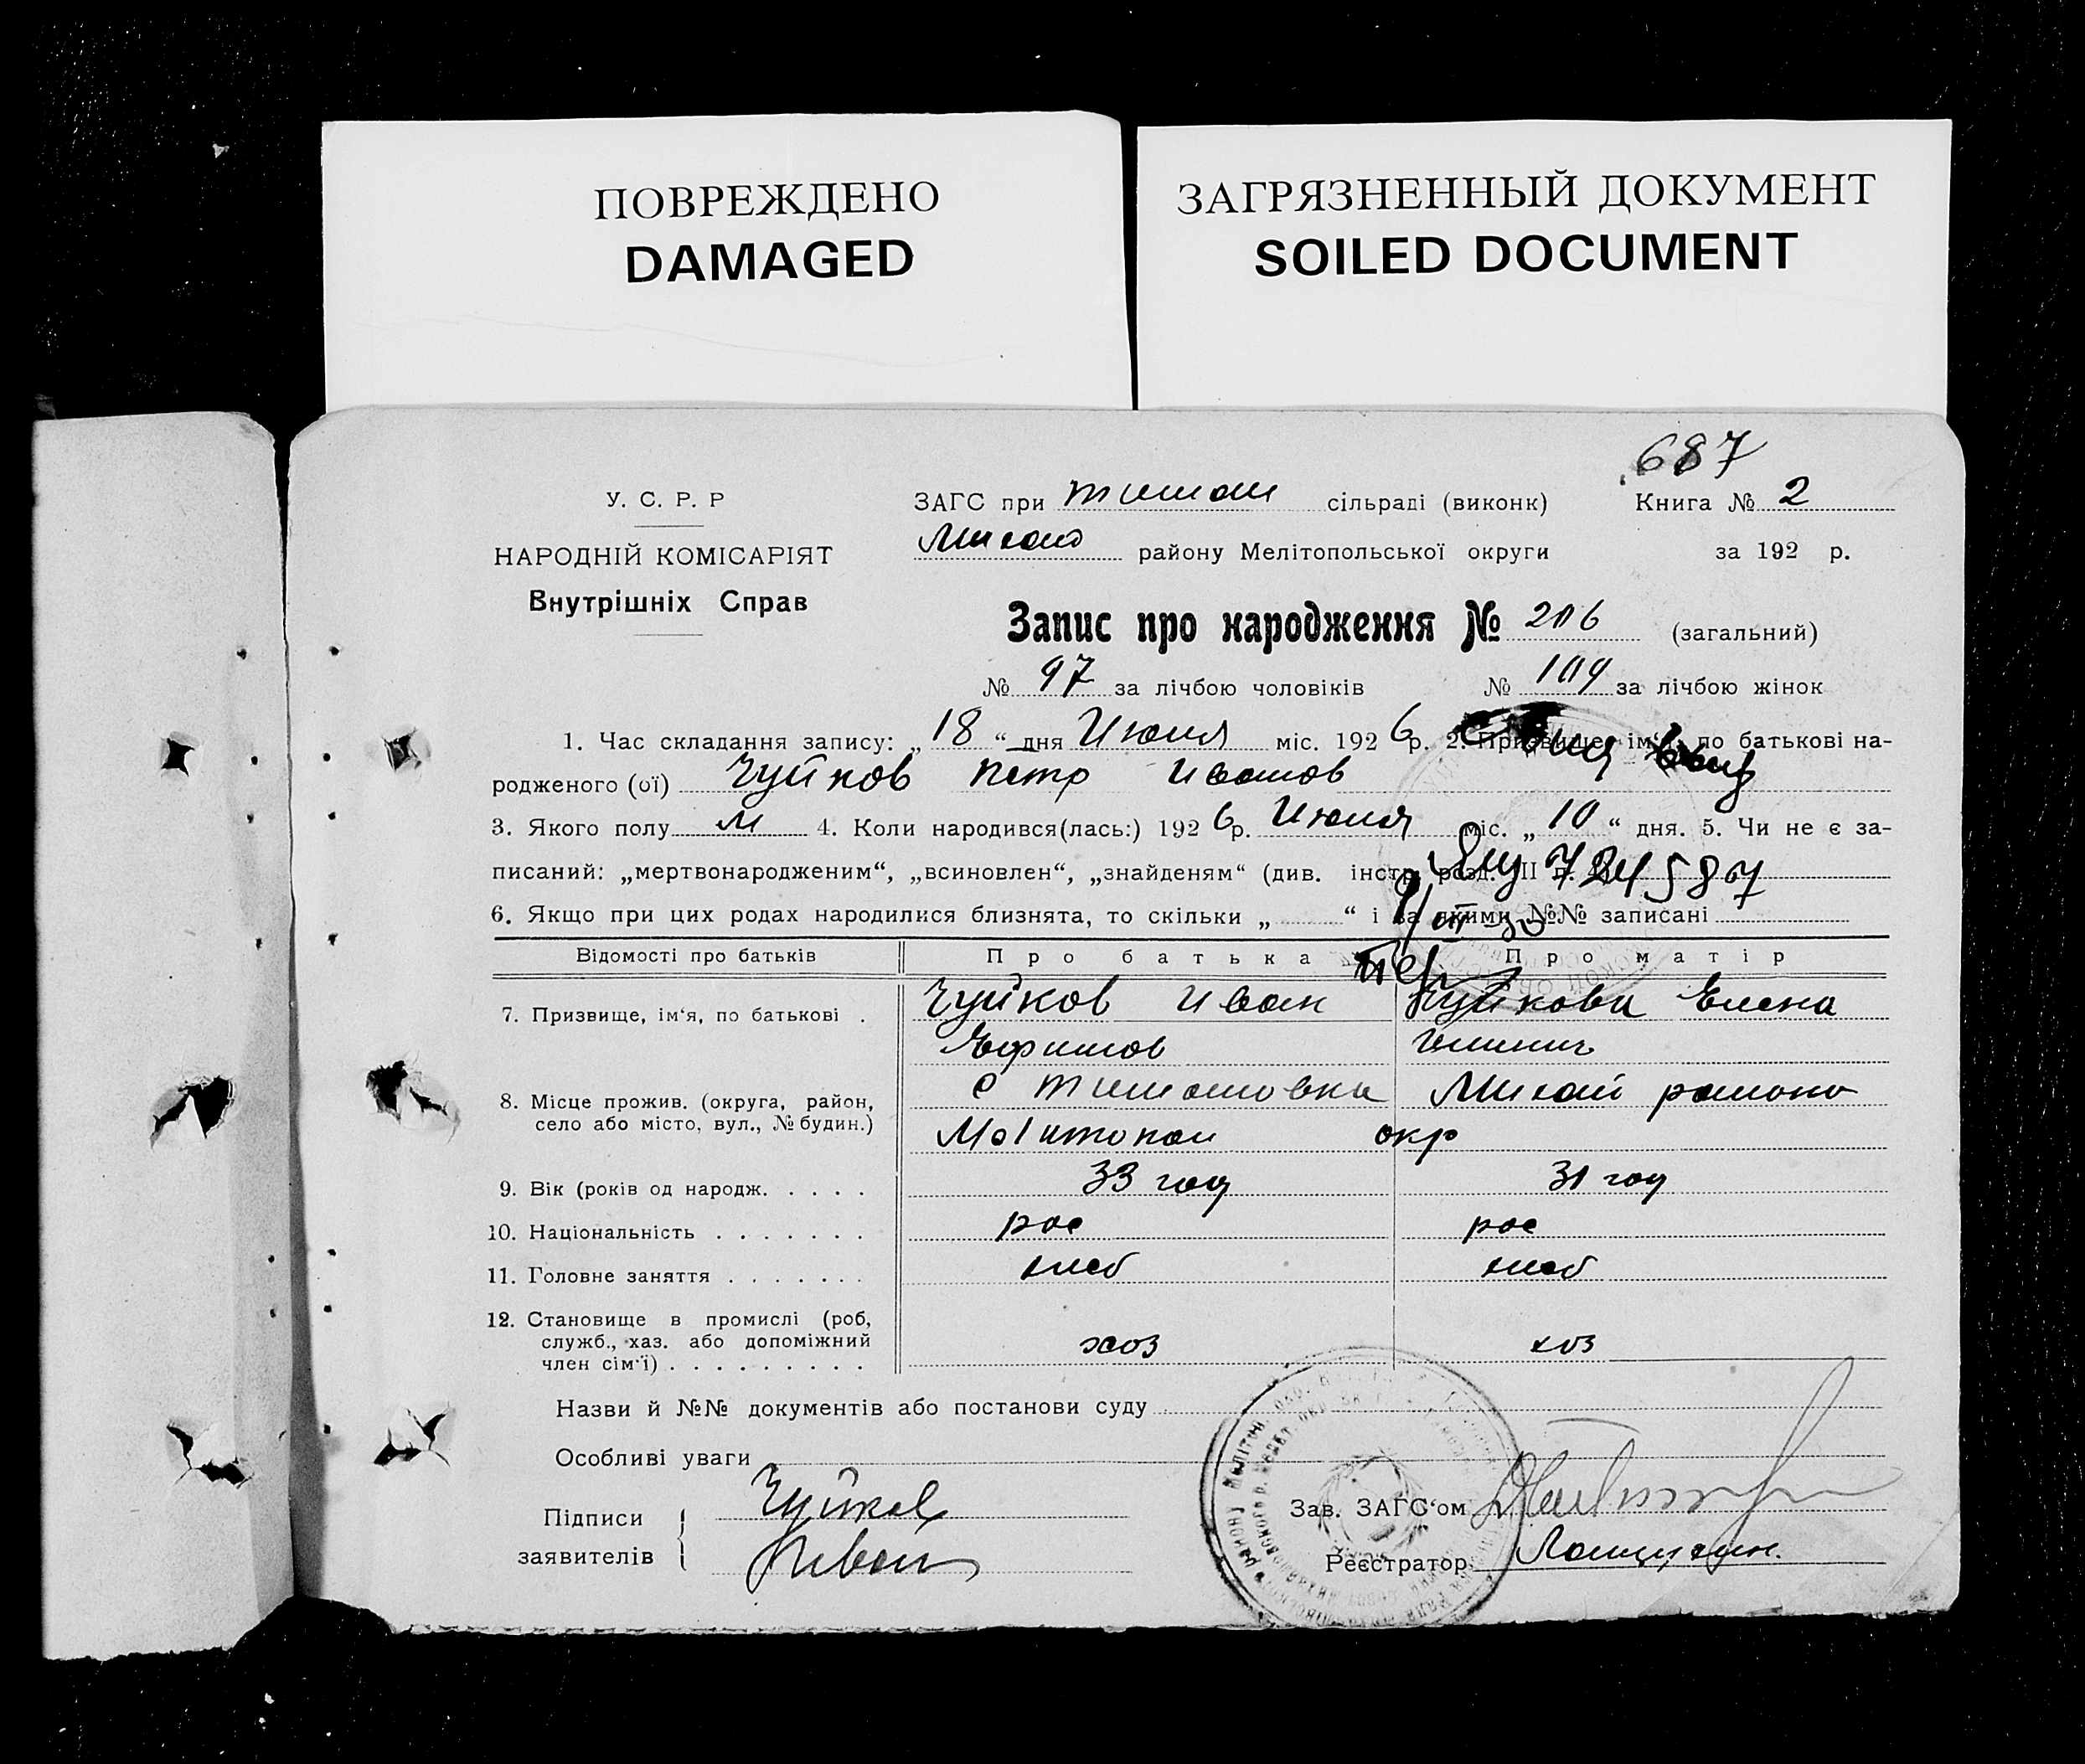 ПОВРЕЖДЕНО
DAMAGED
ЗАГРЯЗНЕННЫЙ ДОКУМЕНТ
SOILED DOCUMENT
687
У. С. Р. Р
НАРОДНІЙ КОМІСАРІЯТ
Внутрішніх Справ
ЗАГС при тимош сільраді (виконк) Книга № 2
Михайл району Мелітопольської округи за 192 р.
Запис про народження № 206 (загальний)
№ 97 за лічбою чоловіків № 109 за лічбою жінок
1. Час складання запису: „18“ дня Июля міс. 1926 р. 2. Призвище, ім‘я, по батькові на-
родженого (ої) Чуйков Петр Иванов
3. Якого полу м 4. Коли народився(лась:) 1926 р. Июля міс. „10“ дня. 5. Чи не є за-
писаний: „мертвонародженим“, „всиновлен“, „знайденям“ (див. інстр. розд. III п.
724587
6. Якщо при цих родах народилися близнята, то скільки „ “ і за якими №№ записані
Відомості про батьків Про батька Про матір
7. Призвище, ім‘я, по батькові . Чуйков Иван Чуйкова Елена
Ефимов
8. Місце прожив. (округа, район, село або місто, вул., № будин.) с Тимошовка Михай району
Мелитопол окр
9. Вік (років од народж. . . . . 33 год 31 год
10. Національність . . . . . . . рос рос
11. Головне заняття . . . . . . . хлеб хлеб
12. Становище в промислі (роб,
служб., хаз. або допоміжний
член сім‘ї) . . . . . . . . . хоз хоз
Назви й №№ документів або постанови суду
Особливі уваги
Підписи заявителів Чуйков
Иван
Зав. ЗАГС‘ом
Реєстратор